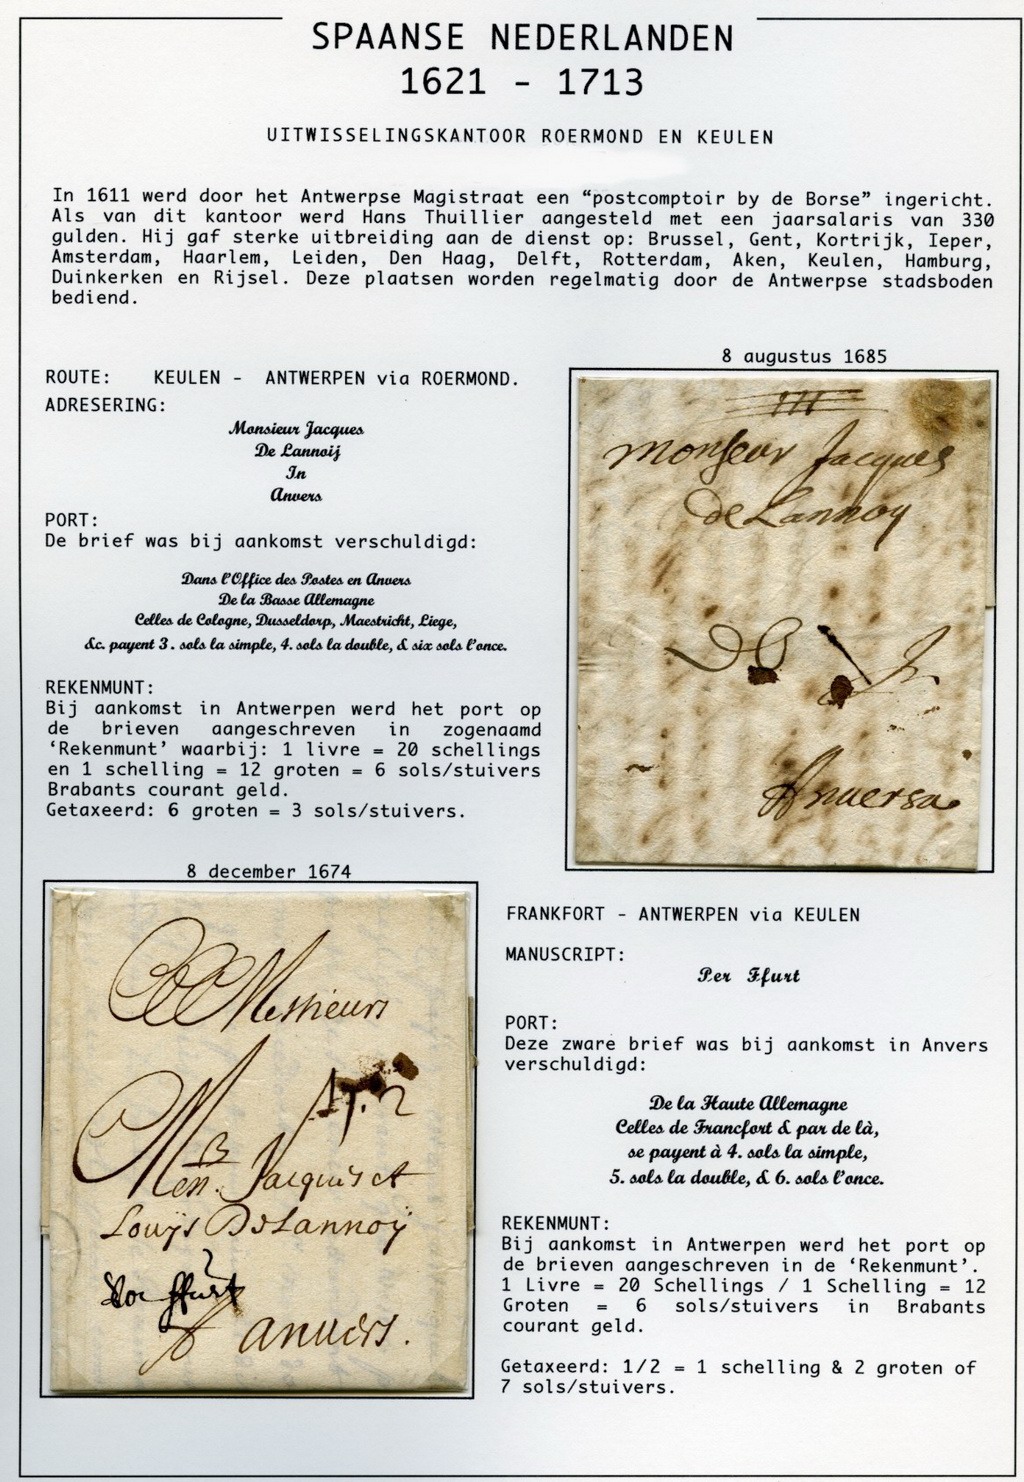 SPAANSE NEDERLANDEN
1621 - 1713
UITWISSELINGSKANTOOR ROERMOND EN KEULEN
In 1611 werd door het Antwerpse Magistraat een “postcomptoir by de Borse” ingericht.
Als van dit kantoor werd Hans Thuillier aangesteld met een jaarsalaris van 330
gulden. Hij gaf sterke uitbreiding aan de dienst op: Brussel, Gent, Kortrijk, Ieper,
Amsterdam, Haarlem, Leiden, Den Haag, Delft, Rotterdam, Aken, Keulen, Hamburg,
Duinkerken en Rijsel. Deze plaatsen worden regelmatig door de Antwerpse stadsboden
bediend.
ROUTE: KEULEN - ANTWERPEN via ROERMOND.
ADRESERING:
Monsieur Jacques
De Lannoij
In
Anvers
PORT:
De brief was bij aankomst verschuldigd:
Dans l'Office des Postes en Anvers
De la Basse Allemagne
Celles de Cologne, Dusseldorp, Maestricht, Liege,
&c. payent 3. sols la simple, 4. sols la double, & six sols l'once.
REKENMUNT:
Bij aankomst in Antwerpen werd het port op
de brieven aangeschreven in zogenaamd
‘Rekenmunt’ waarbij: 1 livre = 20 schellings
en 1 schelling = 12 groten = 6 sols/stuivers
Brabants courant geld.
Getaxeerd: 6 groten = 3 sols/stuivers.
8 augustus 1685
Monsieur Jacques
de Lannoy
Anversa
8 december 1674
Messieurs
Jacquis et
Louijs DeLannoÿ
ffurt
anvers.
FRANKFORT - ANTWERPEN via KEULEN
MANUSCRIPT:
Per Ffurt
PORT:
Deze zware brief was bij aankomst in Anvers
verschuldigd:
De la Haute Allemagne
Celles de Francfort & par de là,
se payent à 4. sols la simple,
5. sols la double, & 6. sols l'once.
REKENMUNT:
Bij aankomst in Antwerpen werd het port op
de brieven aangeschreven in de ‘Rekenmunt’.
1 Livre = 20 Schellings / 1 Schelling = 12
Groten = 6 sols/stuivers in Brabants
courant geld.
Getaxeerd: 1/2 = 1 schelling & 2 groten of
7 sols/stuivers.